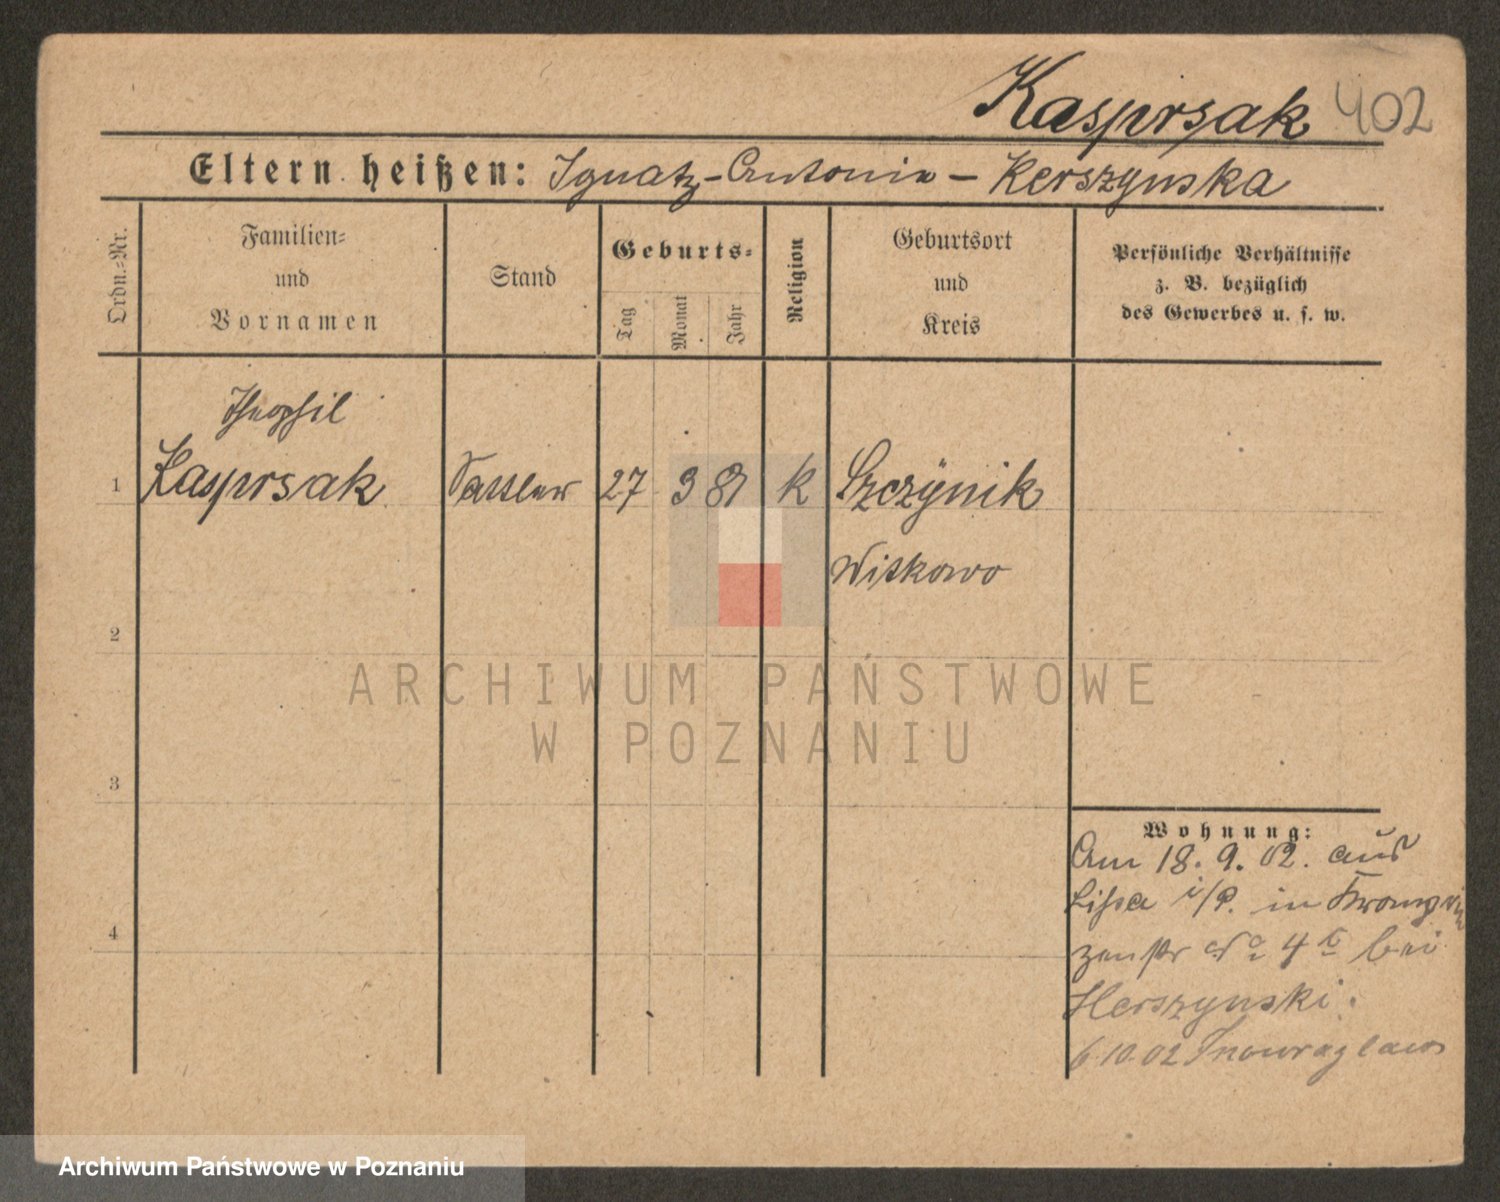 Kasprsak 402
Eltern heißen: Ignatz - Antonie - Kerszynska
Ordn.-Nr.
Familien-
und
Vornamen
Stand
Geburts-
Tag
Monat
Jahr
Religion
Geburtsort
und
Kreis
Persönliche Verhältnisse
z. B. bezüglich
des Gewerbes u. s. w.
Theophil
1 Kasprsak Sattler 27 3 81 K Szczÿnik
Witkowo
2
ARCHIWUM PAŃSTWOWE
W POZNANIU
3
Wohnung:
Am 18. 9. 02. aus
Lissa i/P. in
4
zenstr No 4 bei
Herszynski.
6 10. 02 Inowrazlaw
Archiwum Państwowe w Poznaniu